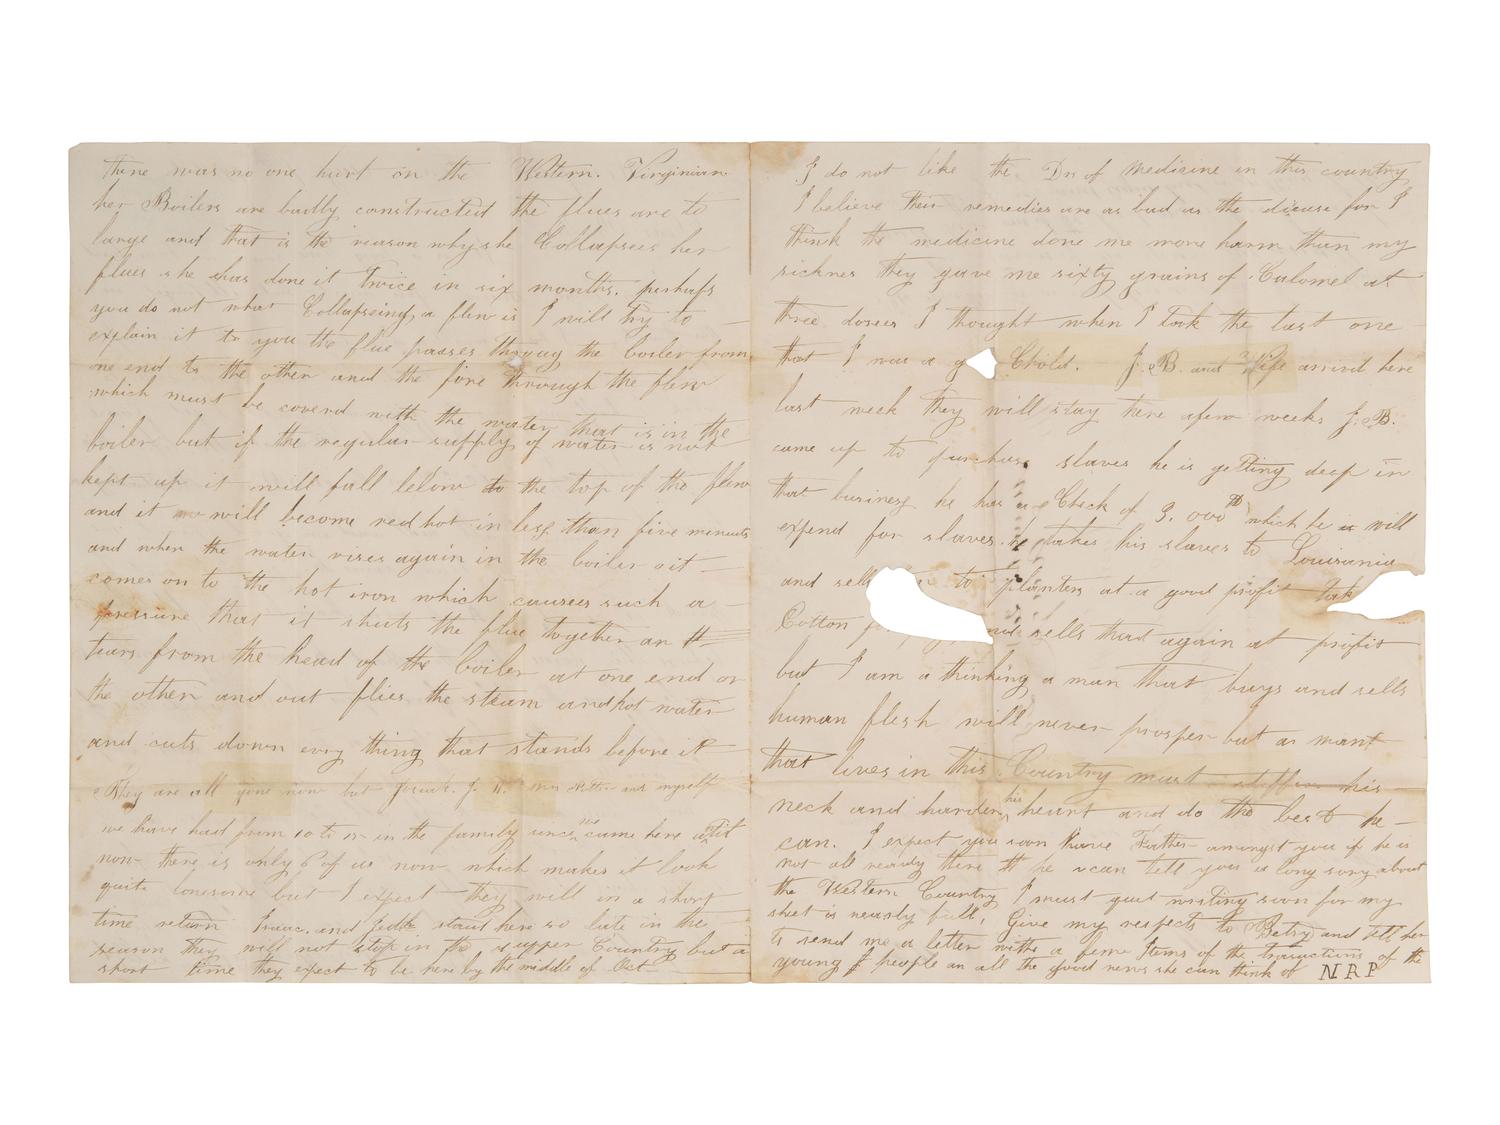 there was no one hurt on the Western. Virginian
her Boilers are badly constructed the flues are to
large and that is the reason why she Collapsees her
flues she has done it twice in six months. perhaps
you do not what Collapseing a flew is I will try to
explain it to you the flue passes throug the boiler from
one end to the other and the fire through the flew
which must be coverd with the water that is in the
boiler but if the regular supply of water is not
kept up it will fall below to the top of the flew
and it will become red hot in less than five menuts
and when the water rises again in the boiler it
comes on to the hot iron which causees such a
pressure that it shuts the flue together an tt
tears from the head of the boiler at one end or
the other and out flies the steam and hot water
and cuts down evry thing that stands before it
They are all gone now but J. H. and myself
we have had from 10 to 12 in the family since we came here untit
now there is only 6 of us now which makes it look
quite lonesome but I expect they will in a short
time return Isaac. and start here so late in the
season they will not stop in the upper Country but a
short time they expect to be here by the middle of Oct
I do not like the Drs of Medicine in this country
I believe their remedies are as bad as the disease for I
think the medicine done me more harm than my
sicknes they gave me sixty grains of Calomel at
three dosees I thought when I took the last one
that I was a g Child. J. B. and Wife arrivd here
last week they will stay here a few weeks J. B.
came up to purchase slaves he is getting deep in
that business he has a Check of 3. 000 which he is will
expend for slaves. he takes his slaves to Louisania
and sells to planters at a good profit Tak
Cotton sells that again at profit
but I am a thinking a man that buys and sells
human flesh will never prosper but a man
that lives in this Country must stiffen his
neck and harden his heart and do the best he
can. I expect you soon have Father amongst you if he is
not all ready there he can tell you a long song about
the Western Country I must quit writing soon for my
sheet is nearly full, Give my respects to Betsy and tell her
to send me a letter withe a few Items of the transactions of the
young people an all the good news she can think of N R P